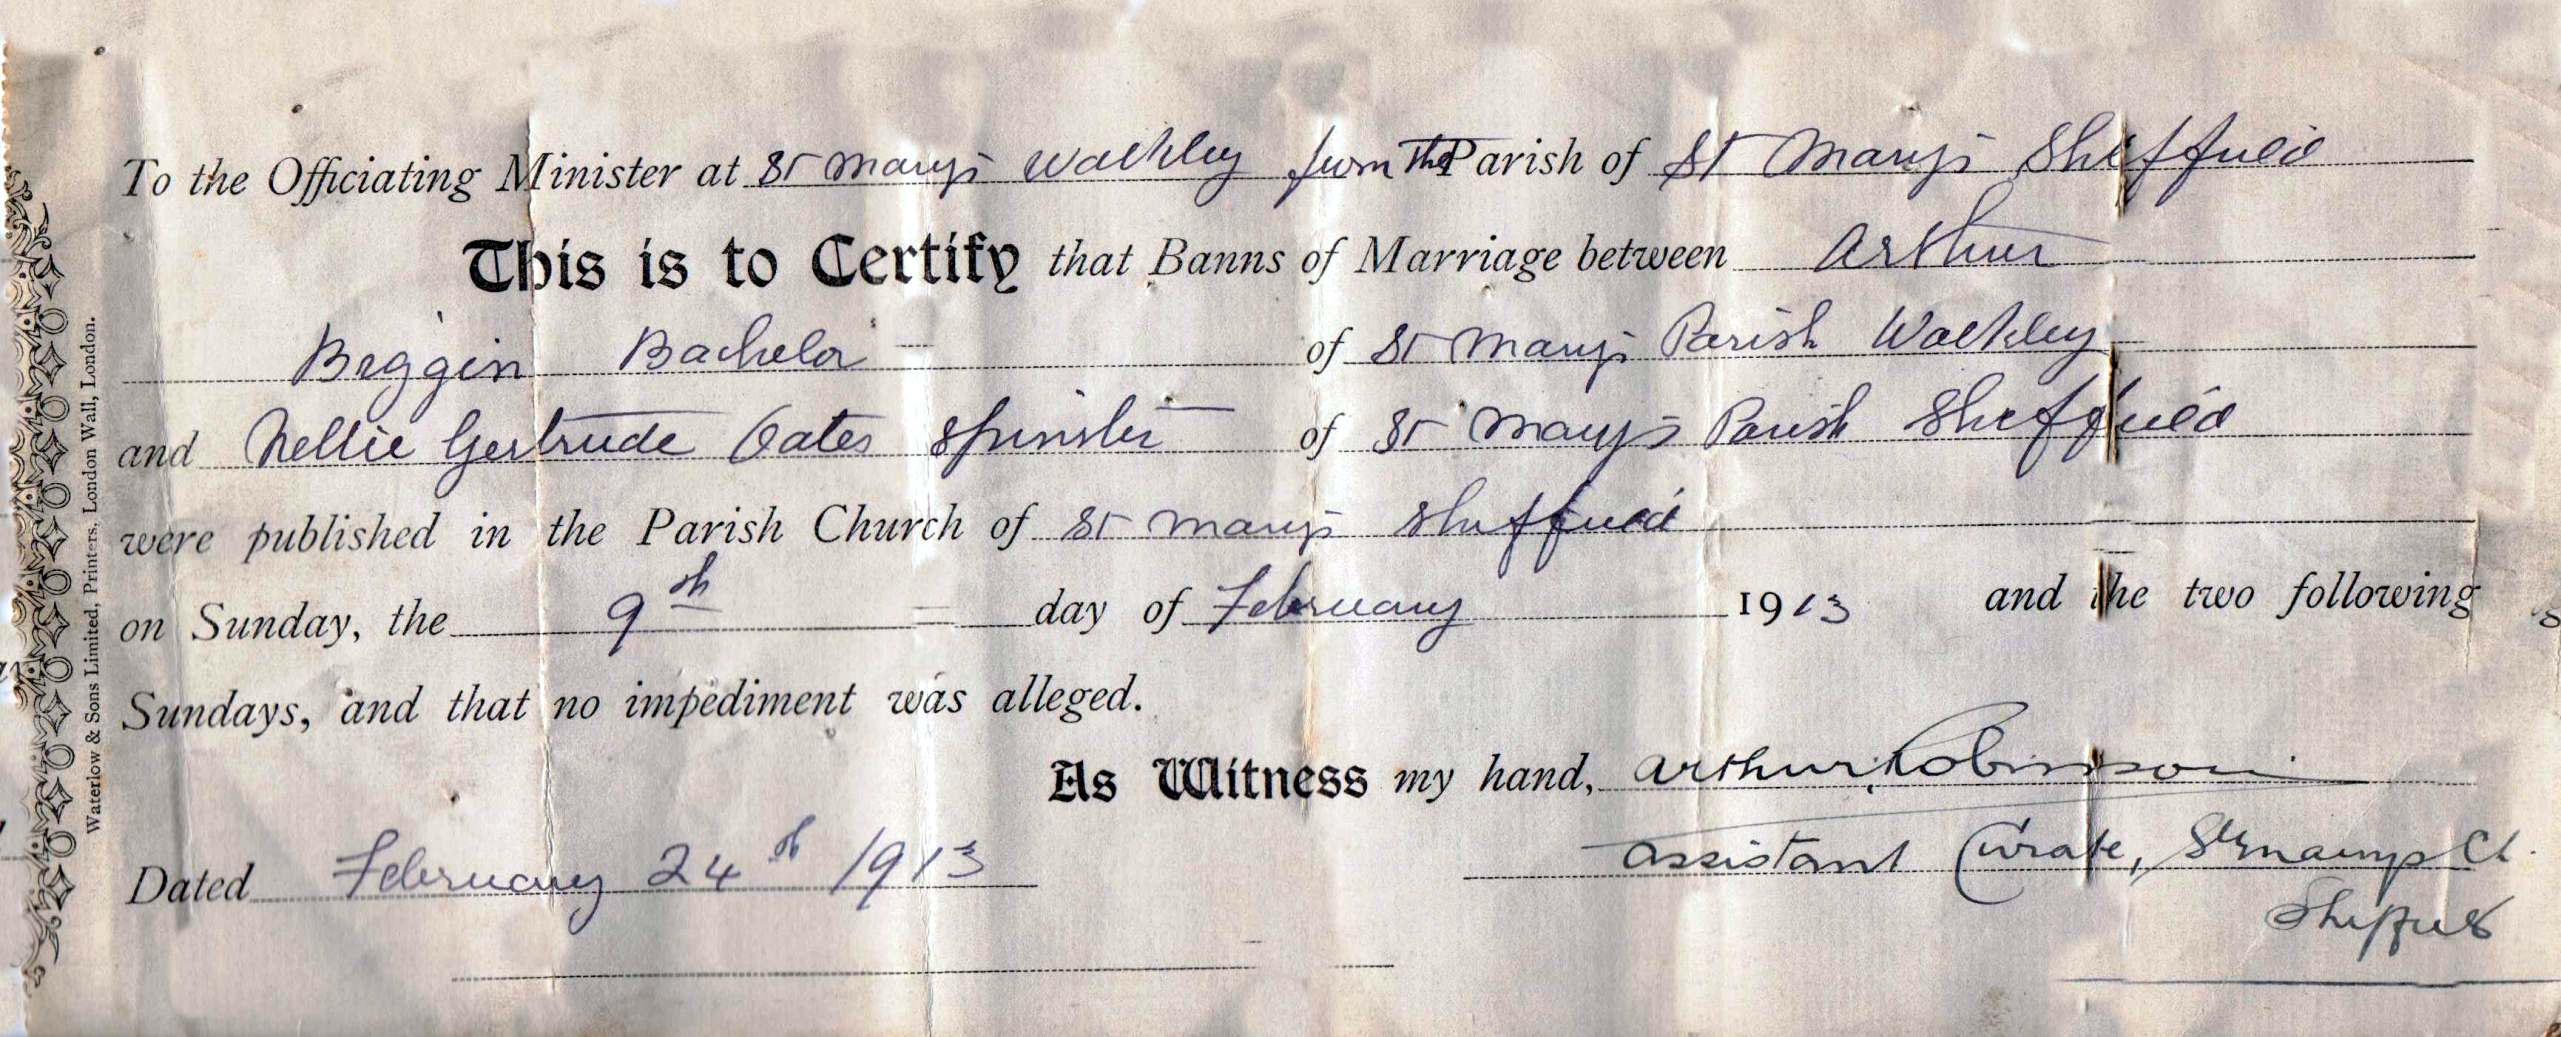 To the Officiating Minister at St Mary's Walkley from The Parish of St Mary's Sheffield
This is to Certify that Banns of Marriage between Arthur
Biggin Bachelor of St Mary's Parish Walkley
and Nellie Gertrude Oates Spinster of St Mary's Parish Sheffield
were published in the Parish Church of St Mary's Sheffield
on Sunday, the 9th day of February 1913 and the two following
Sundays, and that no impediment was alleged.
As Witness my hand, Arthur Robinson
Assistant Curate, St Mary's Ch.
Sheffield
Dated February 24th 1913
Waterlow & Sons Limited, Printers, London Wall, London.